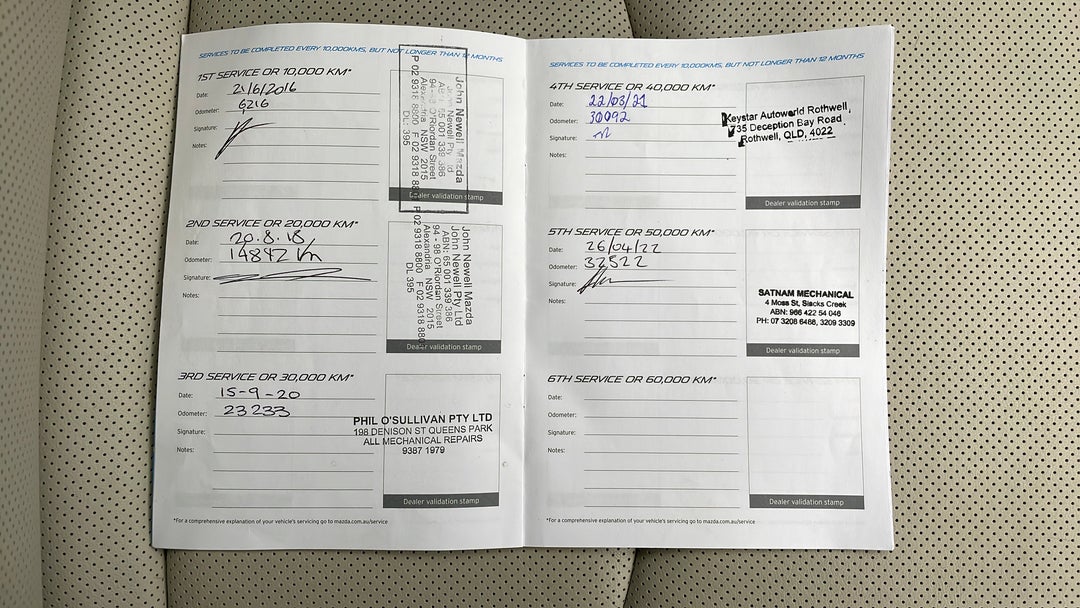 SERVICES TO BE COMPLETED EVERY 10,000KMS, BUT NOT LONGER THAN 12 MONTHS
1ST SERVICE OR 10,000 KM*
Date: 21/6/2016
Odometer: 6216
Signature:
Notes:
John Newell Mazda
John Newell Pty Ltd
ABN: 65 001 339 386
94 - 98 O'Riordan Street
Alexandria NSW 2015
P 02 9318 8800 F 02 9318 88
DL 395
Dealer validation stamp
2ND SERVICE OR 20,000 KM*
Date: 20.8.18
Odometer: 14842 km
Signature:
Notes:
John Newell Mazda
John Newell Pty Ltd
ABN: 65 001 339 386
94 - 98 O'Riordan Street
Alexandria NSW 2015
P 02 9318 8800 F 02 9318 880
DL 395
Dealer validation stamp
3RD SERVICE OR 30,000 KM*
Date: 15-9-20
Odometer: 23233
Signature:
Notes:
PHIL O'SULLIVAN PTY LTD
198 DENISON ST QUEENS PARK
ALL MECHANICAL REPAIRS
9387 1979
Dealer validation stamp
*For a comprehensive explanation of your vehicle's servicing go to mazda.com.au/service
SERVICES TO BE COMPLETED EVERY 10,000KMS, BUT NOT LONGER THAN 12 MONTHS
4TH SERVICE OR 40,000 KM*
Date: 22/03/21
Odometer: 30092
Signature:
Notes:
Keystar Autoworld Rothwell,
735 Deception Bay Road
Rothwell, QLD, 4022
Dealer validation stamp
5TH SERVICE OR 50,000 KM*
Date: 26/04/22
Odometer: 32522
Signature:
Notes:
SATNAM MECHANICAL
4 Moss St, Slacks Creek
ABN: 966 422 54 046
PH: 07 3208 6488, 3209 3309
Dealer validation stamp
6TH SERVICE OR 60,000 KM*
Date:
Odometer:
Signature:
Notes:
Dealer validation stamp
*For a comprehensive explanation of your vehicle's servicing go to mazda.com.au/service